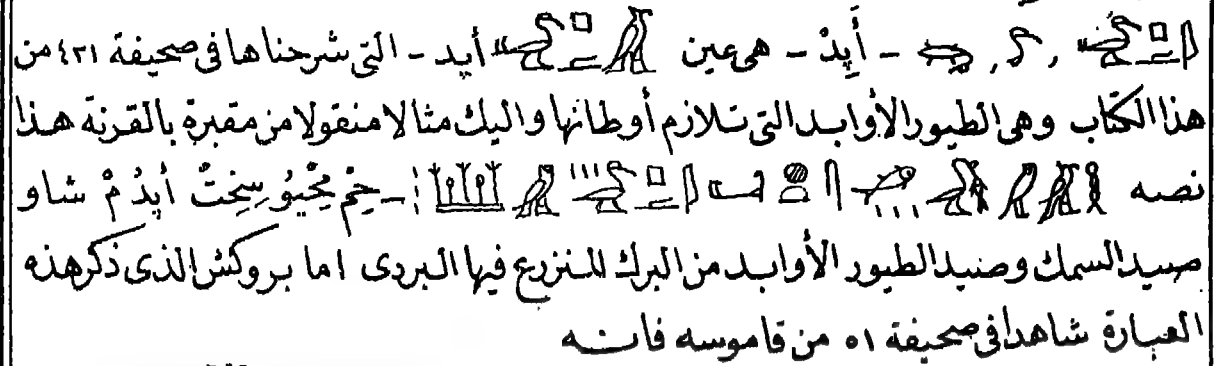 - أَيِدْ - هى عين أيد - التى شرحناها فى صحيفة ٤٢١ من
هذا الكتاب وهى الطيور الأوابد التى تلازم أوطانها واليك مثالا منقولا من مقبرة بالقرنة هذا
نصه - حِمْ مِحْيُو سِخِتْ أيدُ مْ شاو
صيد السمك وصيد الطيور الأوابد من البرك المنزرع فيها البردى اما بروكش الذى ذكر هذه
العبارة شاهدا فى صحيفة ٥١ من قاموسه فانه